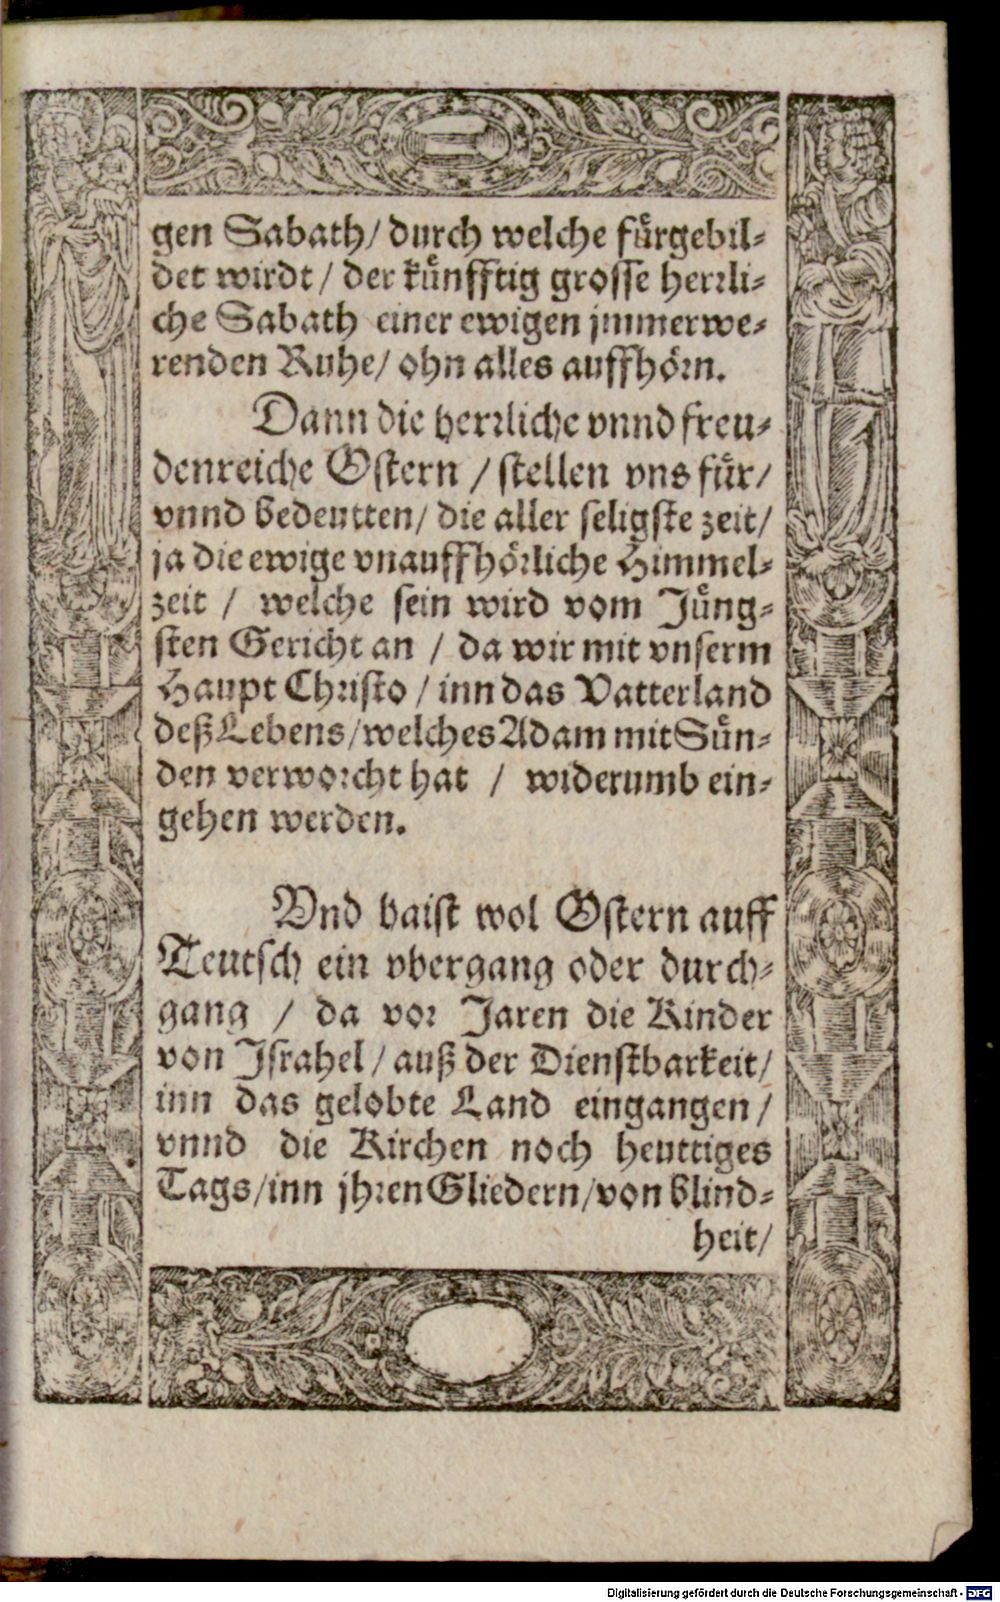 gen Sabath/ durch welche fuͤrgebil-
det wirdt / der kuͤnfftig grosse herrli-
che Sabath einer ewigen jmmerwe-
renden Ruhe/ ohn alles auffhoͤrn.
Dann die herrliche vnnd freu-
denreiche Ostern / stellen vns fuͤr/
vnnd bedeutten/ die aller seligste zeit/
ja die ewige vnauffhoͤrliche Himmel-
zeit / welche sein wird vom Juͤng-
sten Gericht an / da wir mit vnserm
Haupt Christo / inn das Vatterland
deß Lebens/welches Adam mit Suͤn-
den verworcht hat / widerumb ein-
gehen werden.
Vnd haist wol Ostern auff
Teutsch ein vbergang oder durch-
gang / da vor Jaren die Kinder
von Israhel / auß der Dienstbarkeit/
inn das gelobte Land eingangen /
vnnd die Kirchen noch heuttiges
Tags/inn jhren Gliedern/von blind-
heit/
Digitalisierung gefördert durch die Deutsche Forschungsgemeinschaft - DFG